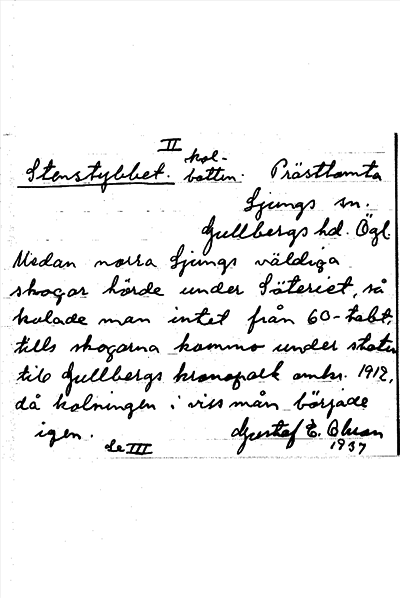 II
Stenstybbet. kol-
botten. Prästtomta
Ljungs sn.
Gullbergs hd. Ögl.
Medan norra Ljungs väldiga
skogar hörde under Säteriet, så
kolade man intet från 60-talet,
tills skogarna kommo under staten
till Gullbergs kronopark omkr. 1912,
då kolningen i viss mån började
igen. Gustaf E. Olsson
Se III 1937